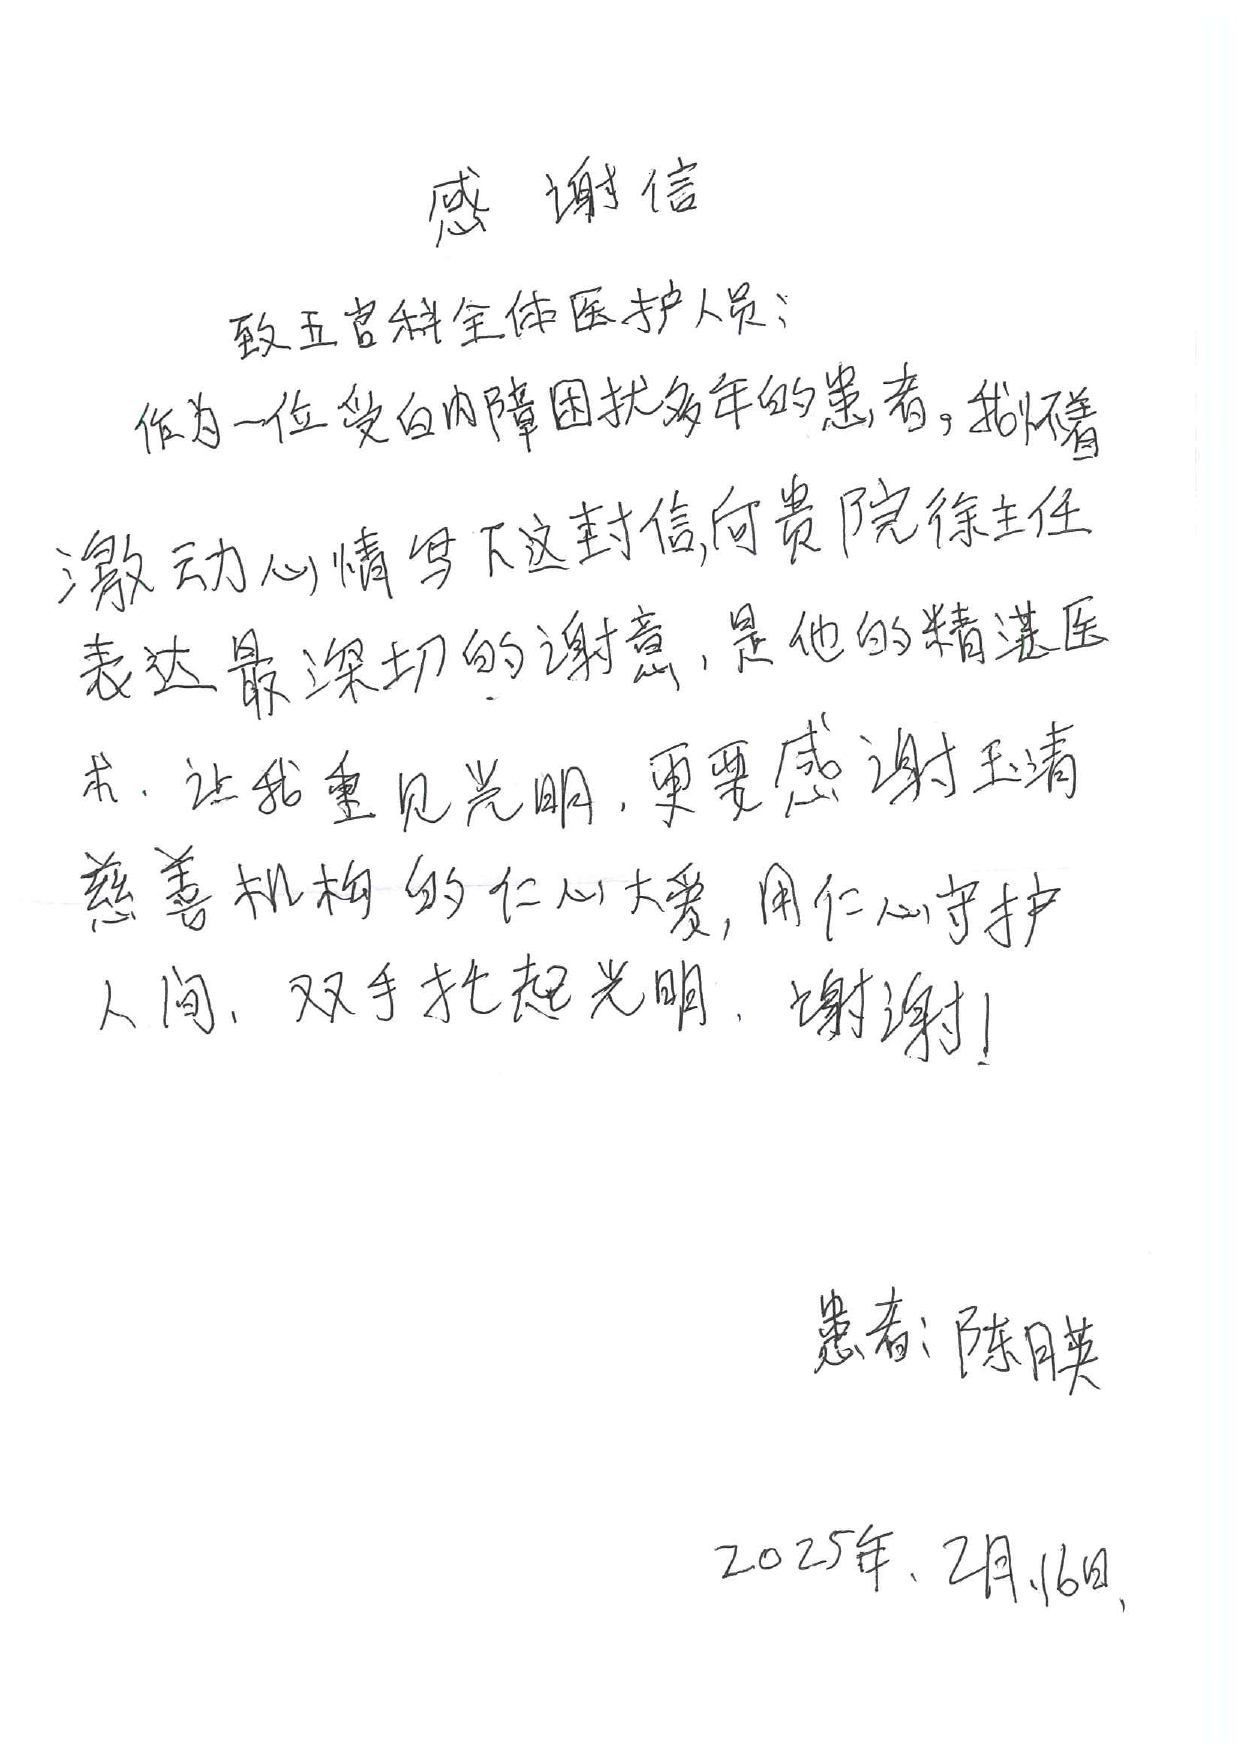 感谢信
致五官科全体医护人员：
作为一位受白内障困扰多年的患者，我怀着
激动心情写下这封信,向贵院徐主任
表达最深切的谢意，是他的精湛医
术、让我重见光明，更要感谢玉清
慈善机构的仁心大爱，用仁心守护
人间、双手托起光明、谢谢！
患者：陈月英
2025年、2月、16日、